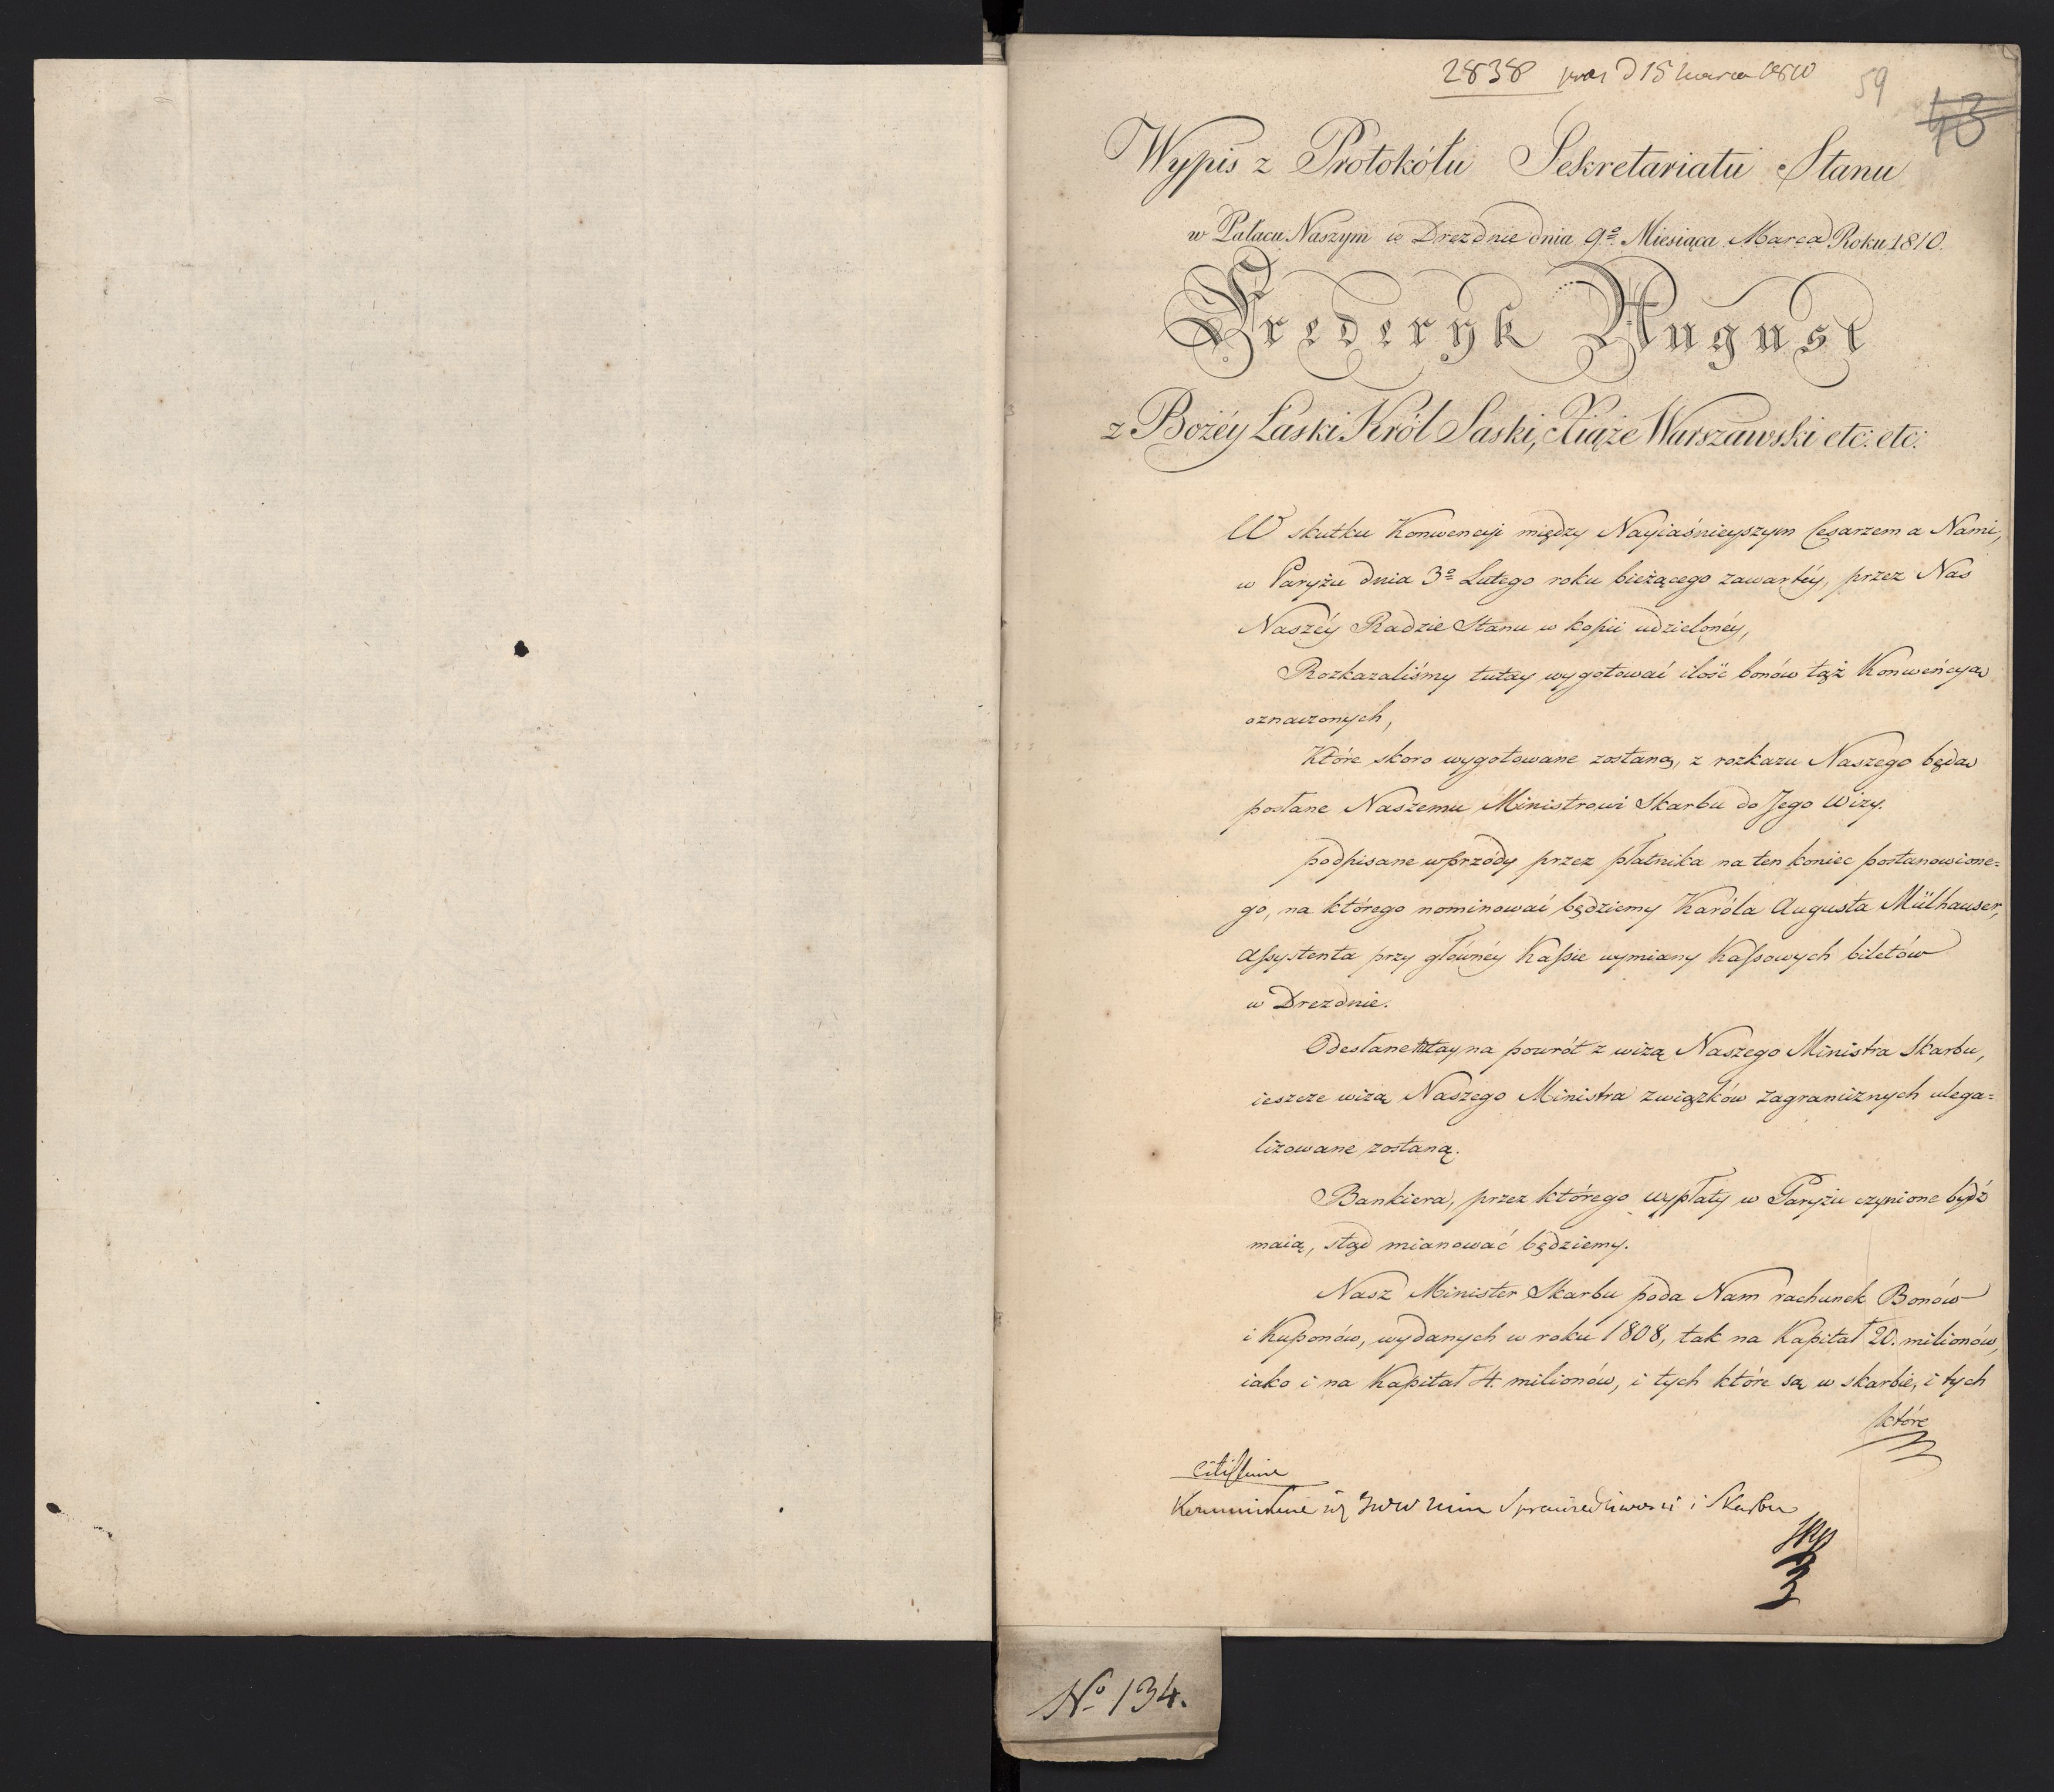 2838 d 15 Marca 1810
59
43
Wypis z Protokółu Sekretariatu Stanu
w Pałacu Naszym w Dreznie dnia 9º Miesiąca Marca Roku 1810.
Fryderyk August
z Bożéy Łaski Król Saski, Xiąże Warszawski etc: etc:
W skutku Konwencyi między Nayiaśnieyszym Cesarzem a Nami,
w Paryżu dnia 3º Lutego roku bieżącego zawartéy, przez Nas
Naszéy Radzie Stanu w kopii udzielonéy,
Rozkazaliśmy tutay wygotować ilość bonów tąż Konwencyą
oznaczonych,
Które skoro wygotowane zostaną, z rozkazu Naszego będą
posłane Naszemu Ministrowi Skarbu do Jego Wizy.
podpisane wprzódy przez płatnika na ten koniec postanowione=
go, na którego nominować będziemy Karóla Augusta Mülhauser,
Assystenta przy głównéy Kassie wymiany Kassowych biletów
w Dreznie.
Odesłane tutay na powrót z wizą Naszego Ministra Skarbu,
ieszcze wizą Naszego Ministra związków zagranicznych ulega=
lizowane zostaną.
Bankiera, przez którego wypłaty w Paryżu czynione bydź
maią, stąd mianować będziemy.
Nasz Minister Skarbu poda Nam rachunek Bonów
i Kuponów, wydanych w roku 1808, tak na Kapitał 20. milionów,
iako i na Kapitał 4. milionów, i tych które są w skarbie, i tych
które
citissime
JWW Min Sprawiedliwości i Skarbu
Nº 134.